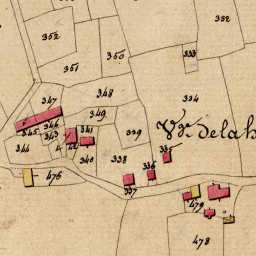 352
332
350
333
351
348
334
347
349
Vr. de la h
345
346
341
339
343
344
340
338
335
336
476
337
479
478